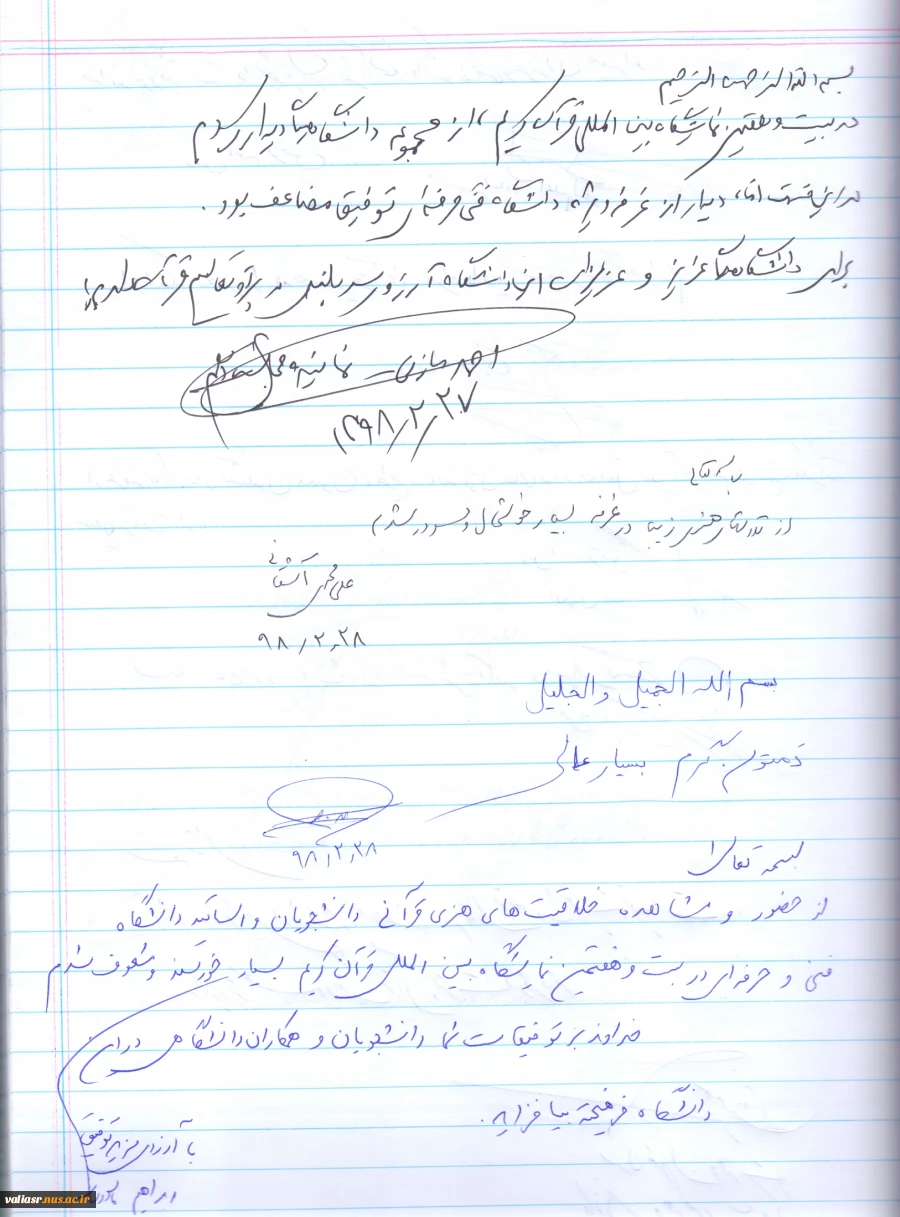 بسم الله الرحمن الرحیم
در بیست و هفتمین نمایشگاه بین المللی قرآن کریم، از مجموعه دانشگاه‌ها دیدار کردم
در این قسمت دیدار از غرفه دانشگاه فنی حرفه‌ای توفیق مضاعف بود.
برای دانشگاه عزیز و عزیزان این دانشگاه آرزوی سربلندی در پرتو تعالیم قرآن
احمد مازنی - نماینده
۱۳۹۸/۲/۲۷
بسمه تعالی
از هنری زیبا در غرفه بسیار خوشحال و مسرور شدم
علی
۹۸/۲/۲۸
بسم الله الجمیل و الجلیل
بسیار عالی
۹۸/۲/۲۸
بسمه تعالی
از حضور و مشاهده خلاقیت‌های هنری قرآنی دانشجویان و اساتید دانشگاه
فنی و حرفه‌ای در بیست و هفتمین نمایشگاه بین المللی قرآن کریم بسیار خرسند و مشعوف شدم
خداوند بر توفیقات شما دانشجویان و همکاران دانشگاهی در این
دانشگاه فرهیخته بیافزاید.
با آرزوی مزید توفیق
ابراهیم
valiasr.nus.ac.ir